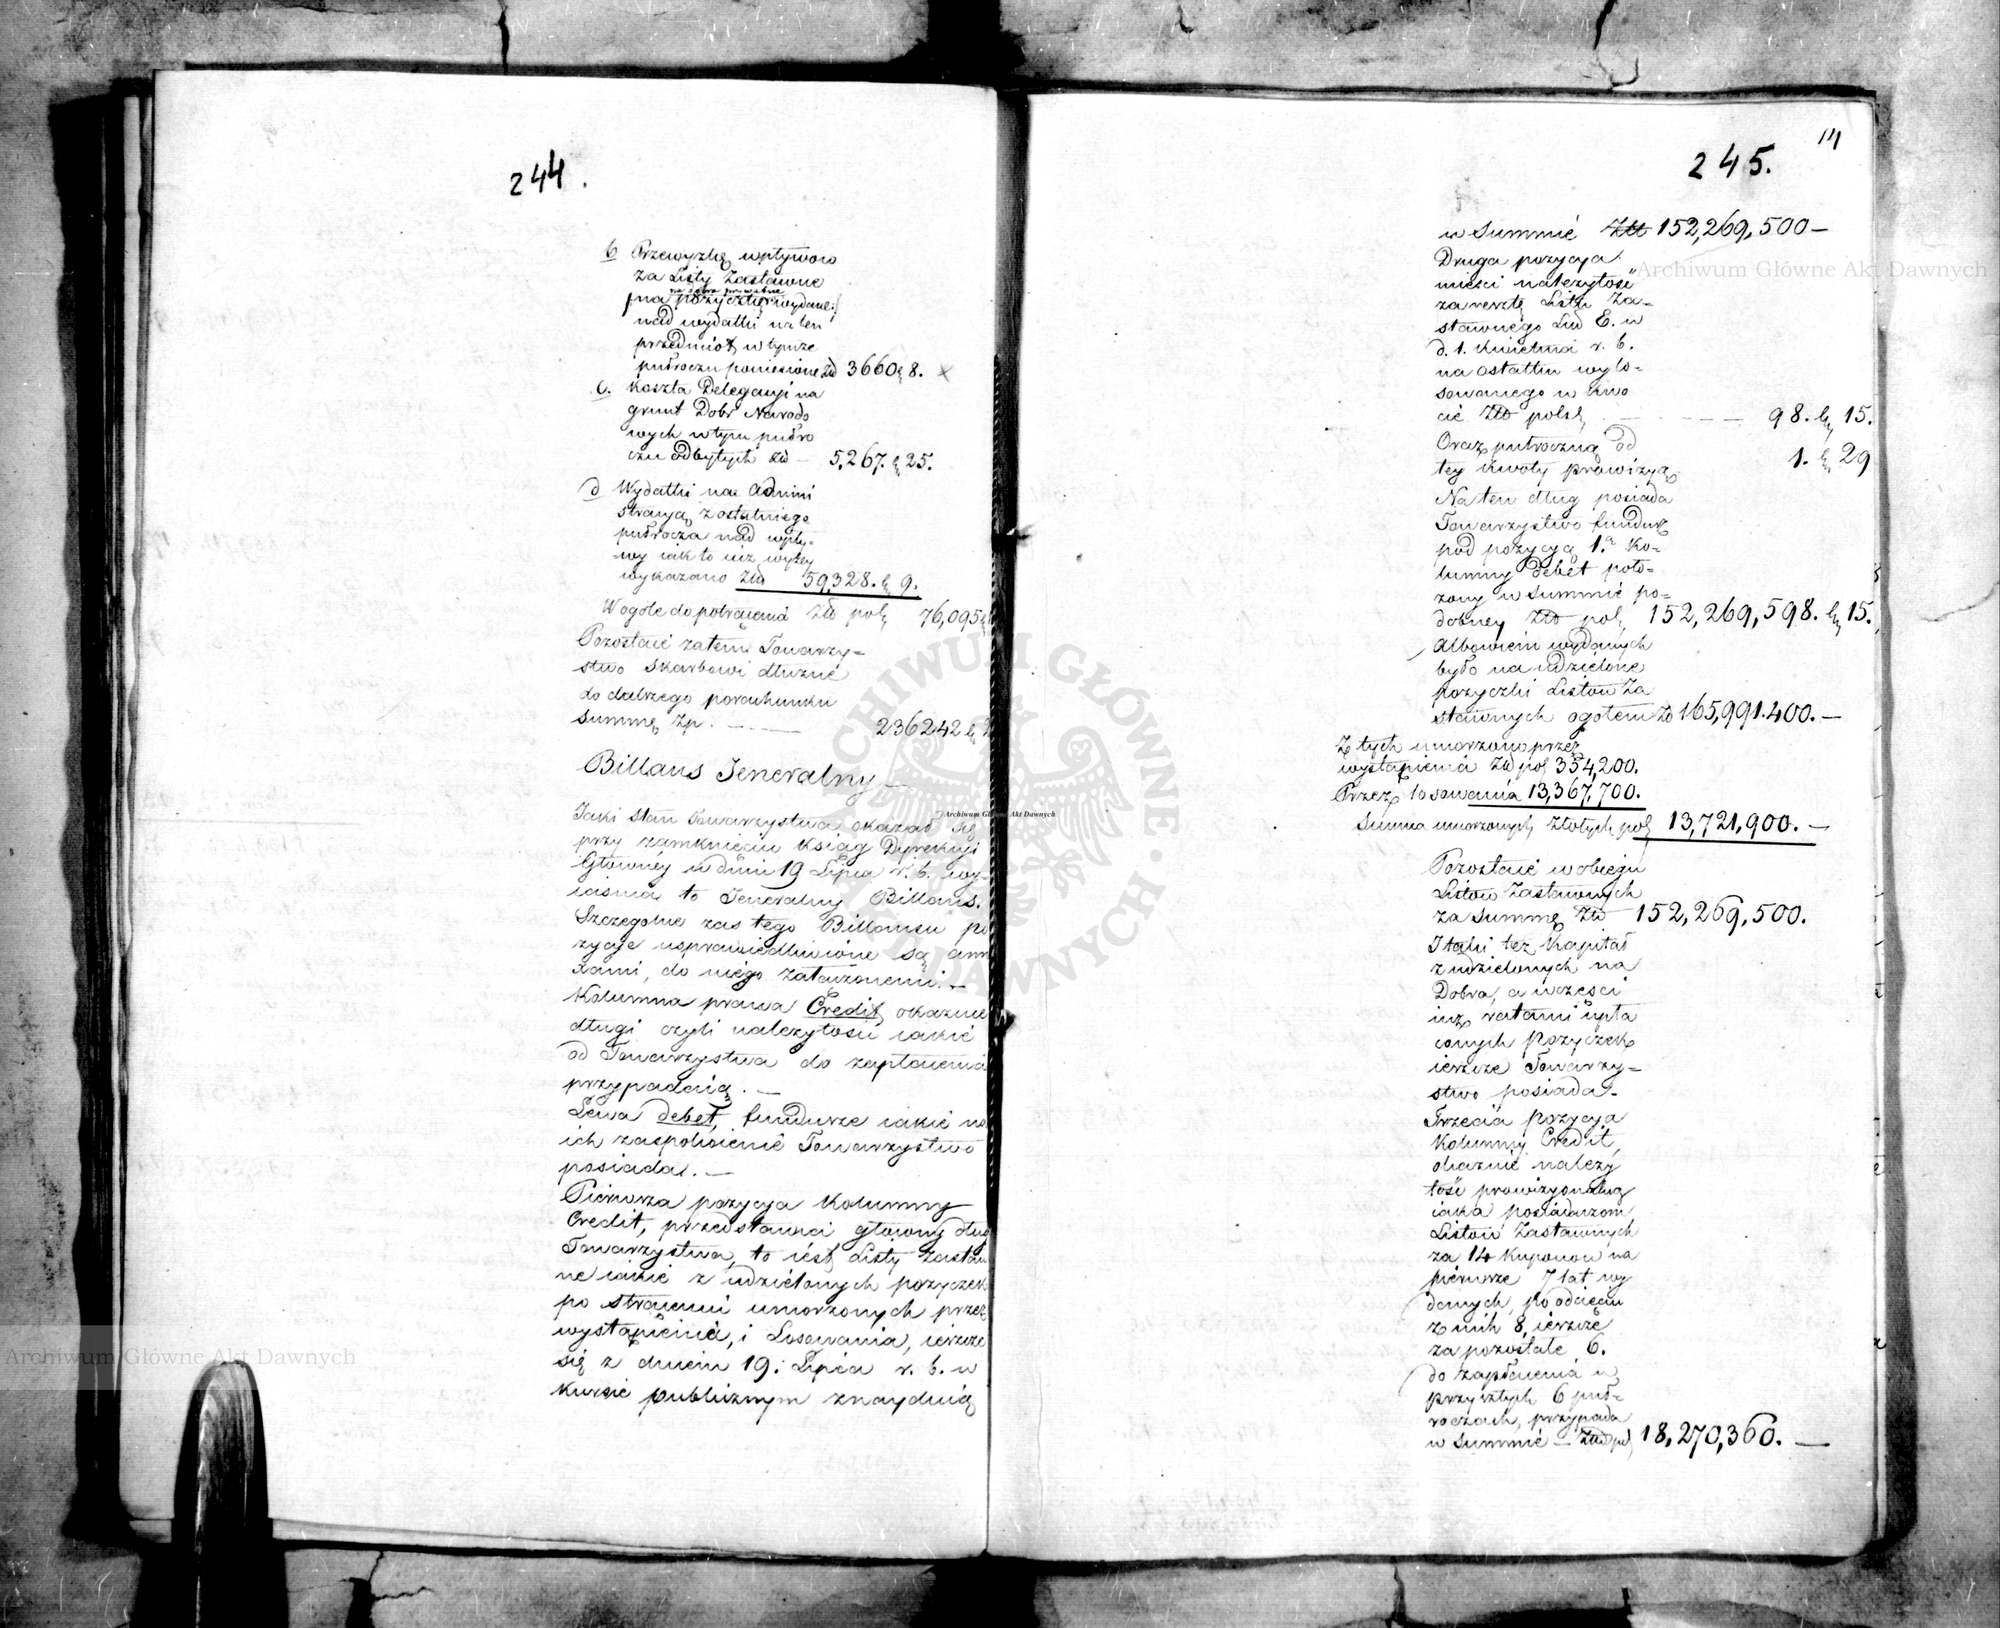 244.
b Przewyżkę wpływow
za Listy Zastawne
na dobra prywatne
/na pożyczkę wydane:/
nad wydatki na ten
przedmiot w tymże
pułroczu poniesione Zł 3660 g 8.
c. Koszta Delegacyi na
grunt Dobr Narodo
wych w tym pułro
czu odbytych Zł — 5,267. g 25.
d Wydatki na Admini
stracyą z ostatniego
pułrocza nad wpły-
wy iak to iuż wyżey
wykazano Zł 59,328. g 9.
W ogóle do potrącenia Zł pol. 76,095 g
Pozostaie zatem Towarzy-
stwo Skarbowi dłużne
do dalszego porachunku
Summę Zp. — 236242 g
Billans Jeneralny —
Jaki stan Towarzystwa okazał się
przy zamknięciu ksiąg Dyrekcyi
Główney w dniu 19 Lipca r. b. wy-
iaśnia to Jeneralny Billans.
Szczegolne zas tego Billansu po
zycye usprawiedliwione są ann
xami, do niego załączonemi. —
Kolumna prawa Credit, okazuie
długi czyli należytości iakie
od Towarzystwa do zapłacenia
przypadaią. —
Lewa debet, fundusze iakie na
ich zaspokoienie Towarzystwo
posiada. —
Pierwsza pozycya kolumny
Credit, przedstawia głowny dług
Towarzystwa, to iest Listy Zastaw
ne iakie z udzielonych pożyczek
po strąceniu umorzonych przez
wystąpienia, i Losowania, ieszcze
się z dniem 19. Lipca r. b. w
kursie publicznym znayduią
14
245.
w Summie Złł 152,269,500 —
Druga pozycya
mieści należytość
za resztę Listu Za-
stawnego Lud E. w
d. 1. Kwietnia r. b.
na ostatku wylo-
sowanego w kwo
cie Złł polsk — — — 98. g 15.
Oraz pułroczną od
tey kwoty prowizyą 1. g. 29
Na ten dług posiada
Towarzystwo fundusz
pod pozycyą 1.ą Ko-
lumny debet poło-
żony w Summie po-
dobney Złł pol. 152,269,598. g 15.
Albowiem wydanych
było na udzielone
pożyczki Listow Za
stawnych ogołem Zł 165,991.400. —
Z tych umorzono przez
wystąpienia Zł pol 354,200.
Przez losowania 13,367,700.
Summa umorzonych Złotych pol 13,721,900. —
Pozostaie w obiegu
Listow Zastawnych
za Summę Złł 152,269,500.
I taki też Kapitał
z udzielonych na
Dobra, a w części
iuż ratami spła
conych pożyczek
ieszcze Towarzy-
stwo posiada.
Trzecia pozycya
Kolumny Credit,
okazuie należy
tość prowizyonalną
iaka posiadaczom
Listow Zastawnych
za 14 Kuponow na
pierwsze 7 lat wy
danych, po odcięciu
z nich 8, ieszcze
za pozostałe 6.
do zapłacenia w
przyszłych 6 puł-
roczach, przypada
w Summie — Złł pol 18,270,360. —
Archiwum Główne Akt Dawnych
Archiwum Główne Akt Dawnych
Archiwum Główne Akt Dawnych
ARCHIWUM GŁÓWNE AKT DAWNYCH